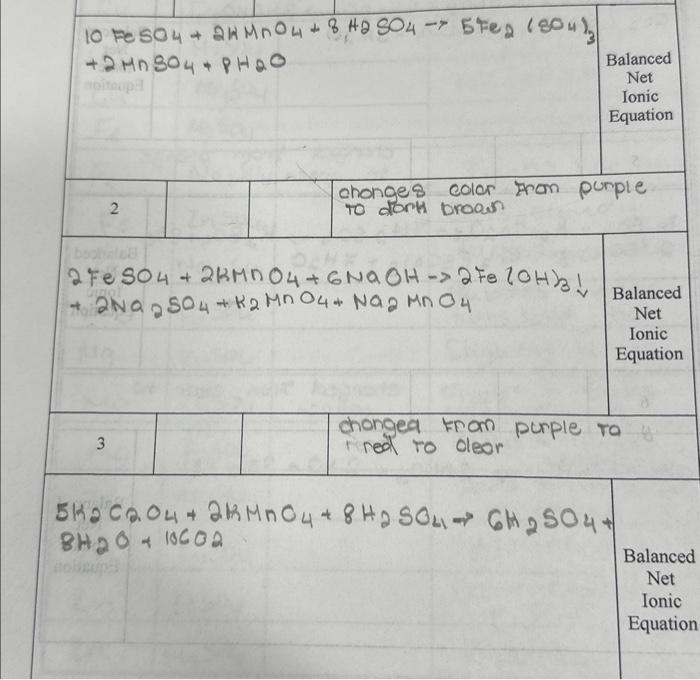 10 FeSO4 + 2KMnO4 + 8 H2SO4 → 5Fe2 (SO4)3
+ 2MnSO4 + 8H2O
Balanced
Net
Ionic
Equation
2
changes color from purple
to dark brown
2FeSO4 + 2KMnO4 + 6NaOH -> 2Fe(OH)3↓
+ 2Na2SO4 + K2MnO4 + Na2MnO4
Balanced
Net
Ionic
Equation
3
changed from purple to
red to clear
5K2C2O4 + 2KMnO4 + 8H2SO4 → 6K2SO4 +
8H2O + 10CO2
Balanced
Net
Ionic
Equation